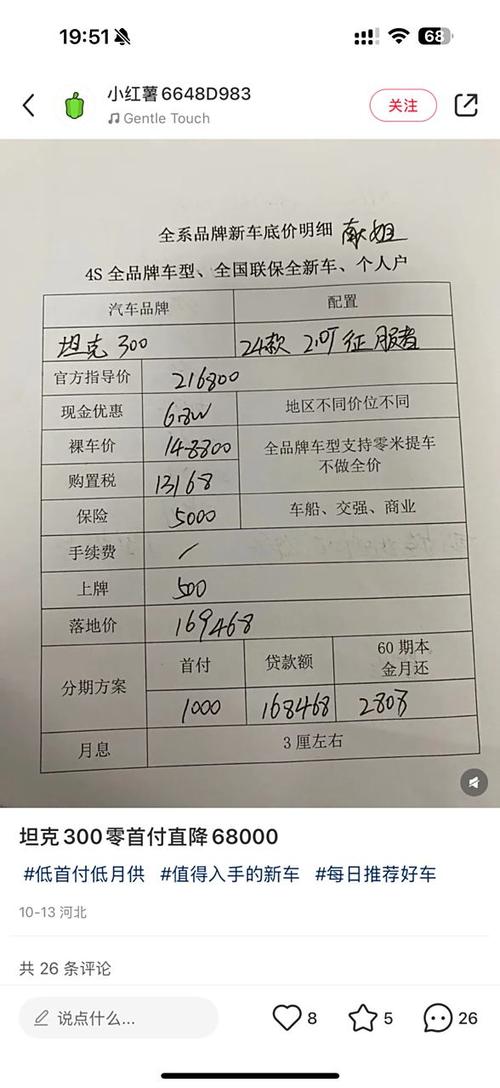 19:51
68
小红薯6648D983
Gentle Touch
关注
全系品牌新车底价明细
4S 全品牌车型、全国联保全新车、个人户
汽车品牌 配置
坦克 300 24款 2.0T 征服者
官方指导价 216800
现金优惠 6.8W 地区不同价位不同
裸车价 148800 全品牌车型支持零米提车
不做全价
购置税 13168
保险 5000 车船、交强、商业
手续费 /
上牌 500
落地价 169468
分期方案 首付 贷款额 60 期本
金月还
1000 168468 2808
月息 3 厘左右
坦克300零首付直降68000
#低首付低月供 #值得入手的新车 #每日推荐好车
10-13 河北
共 26 条评论
说点什么...
8
5
26